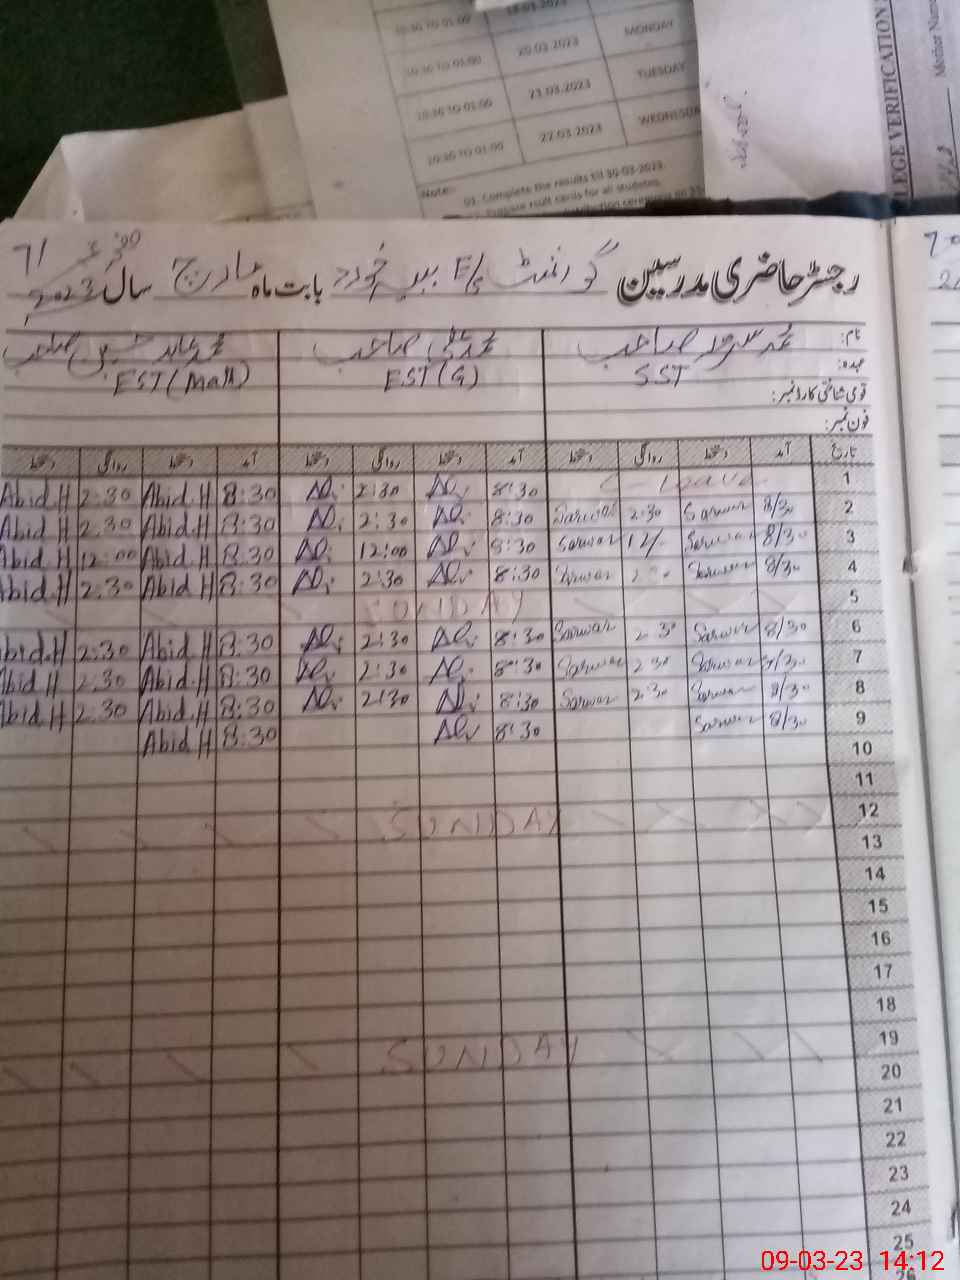 10:30 TO 01:00 18.03.2023
10:30 TO 01:00 20.03.2023 MONDAY
10:30 TO 01:00 21.03.2023 TUESDAY
10:30 TO 01:00 22.03.2023 WEDNESDA
Note:
01. Complete the results till 30-03-2023.
LEGE VERIFICATION
Mother Name
71
رجسٹر حاضری مدرسین گورنمنٹ E/S خورد بابت ماہ مارچ سال 2023
نام: محمد سرور صاحب محمد علی صاحب محمد عابد حسین صاحب
عہدہ: SST EST(G) EST(Math)
قومی شناختی کارڈ نمبر:
فون نمبر:
تاریخ آمد دستخط روانگی دستخط آمد دستخط روانگی دستخط آمد دستخط روانگی دستخط
Abid.H 2:30 Abid.H 8:30 Ali 2:30 Ali 8:30 C-Leave 1
Abid.H 2:30 Abid.H 8:30 Ali 2:30 Ali 8:30 Sarwar 2:30 Sarwar 8/30 2
Abid.H 12:00 Abid.H 8:30 Ali 12:00 Ali 8:30 Sarwar 12/- Sarwar 8/30 3
Abid.H 2:30 Abid.H 8:30 Ali 2:30 Ali 8:30 Sarwar Sarwar 8/30 4
SUNDAY 5
bid.H 2:30 Abid.H 8:30 Ali 2:30 Ali 8:30 Sarwar 2:30 Sarwar 8/30 6
Abid H 2:30 Abid.H 8:30 Ali 2:30 Ali 8:30 Sarwar 2:30 Sarwar 8/30 7
Abid H 2:30 Abid.H 8:30 Ali 2:30 Ali 8:30 Sarwar 2:30 Sarwar 8/30 8
Abid H 8:30 Ali 8:30 Sarwar 8/30 9
10
11
SUNDAY 12
13
14
15
16
17
18
SUNDAY 19
20
21
22
23
24
25
09-03-23 14:12